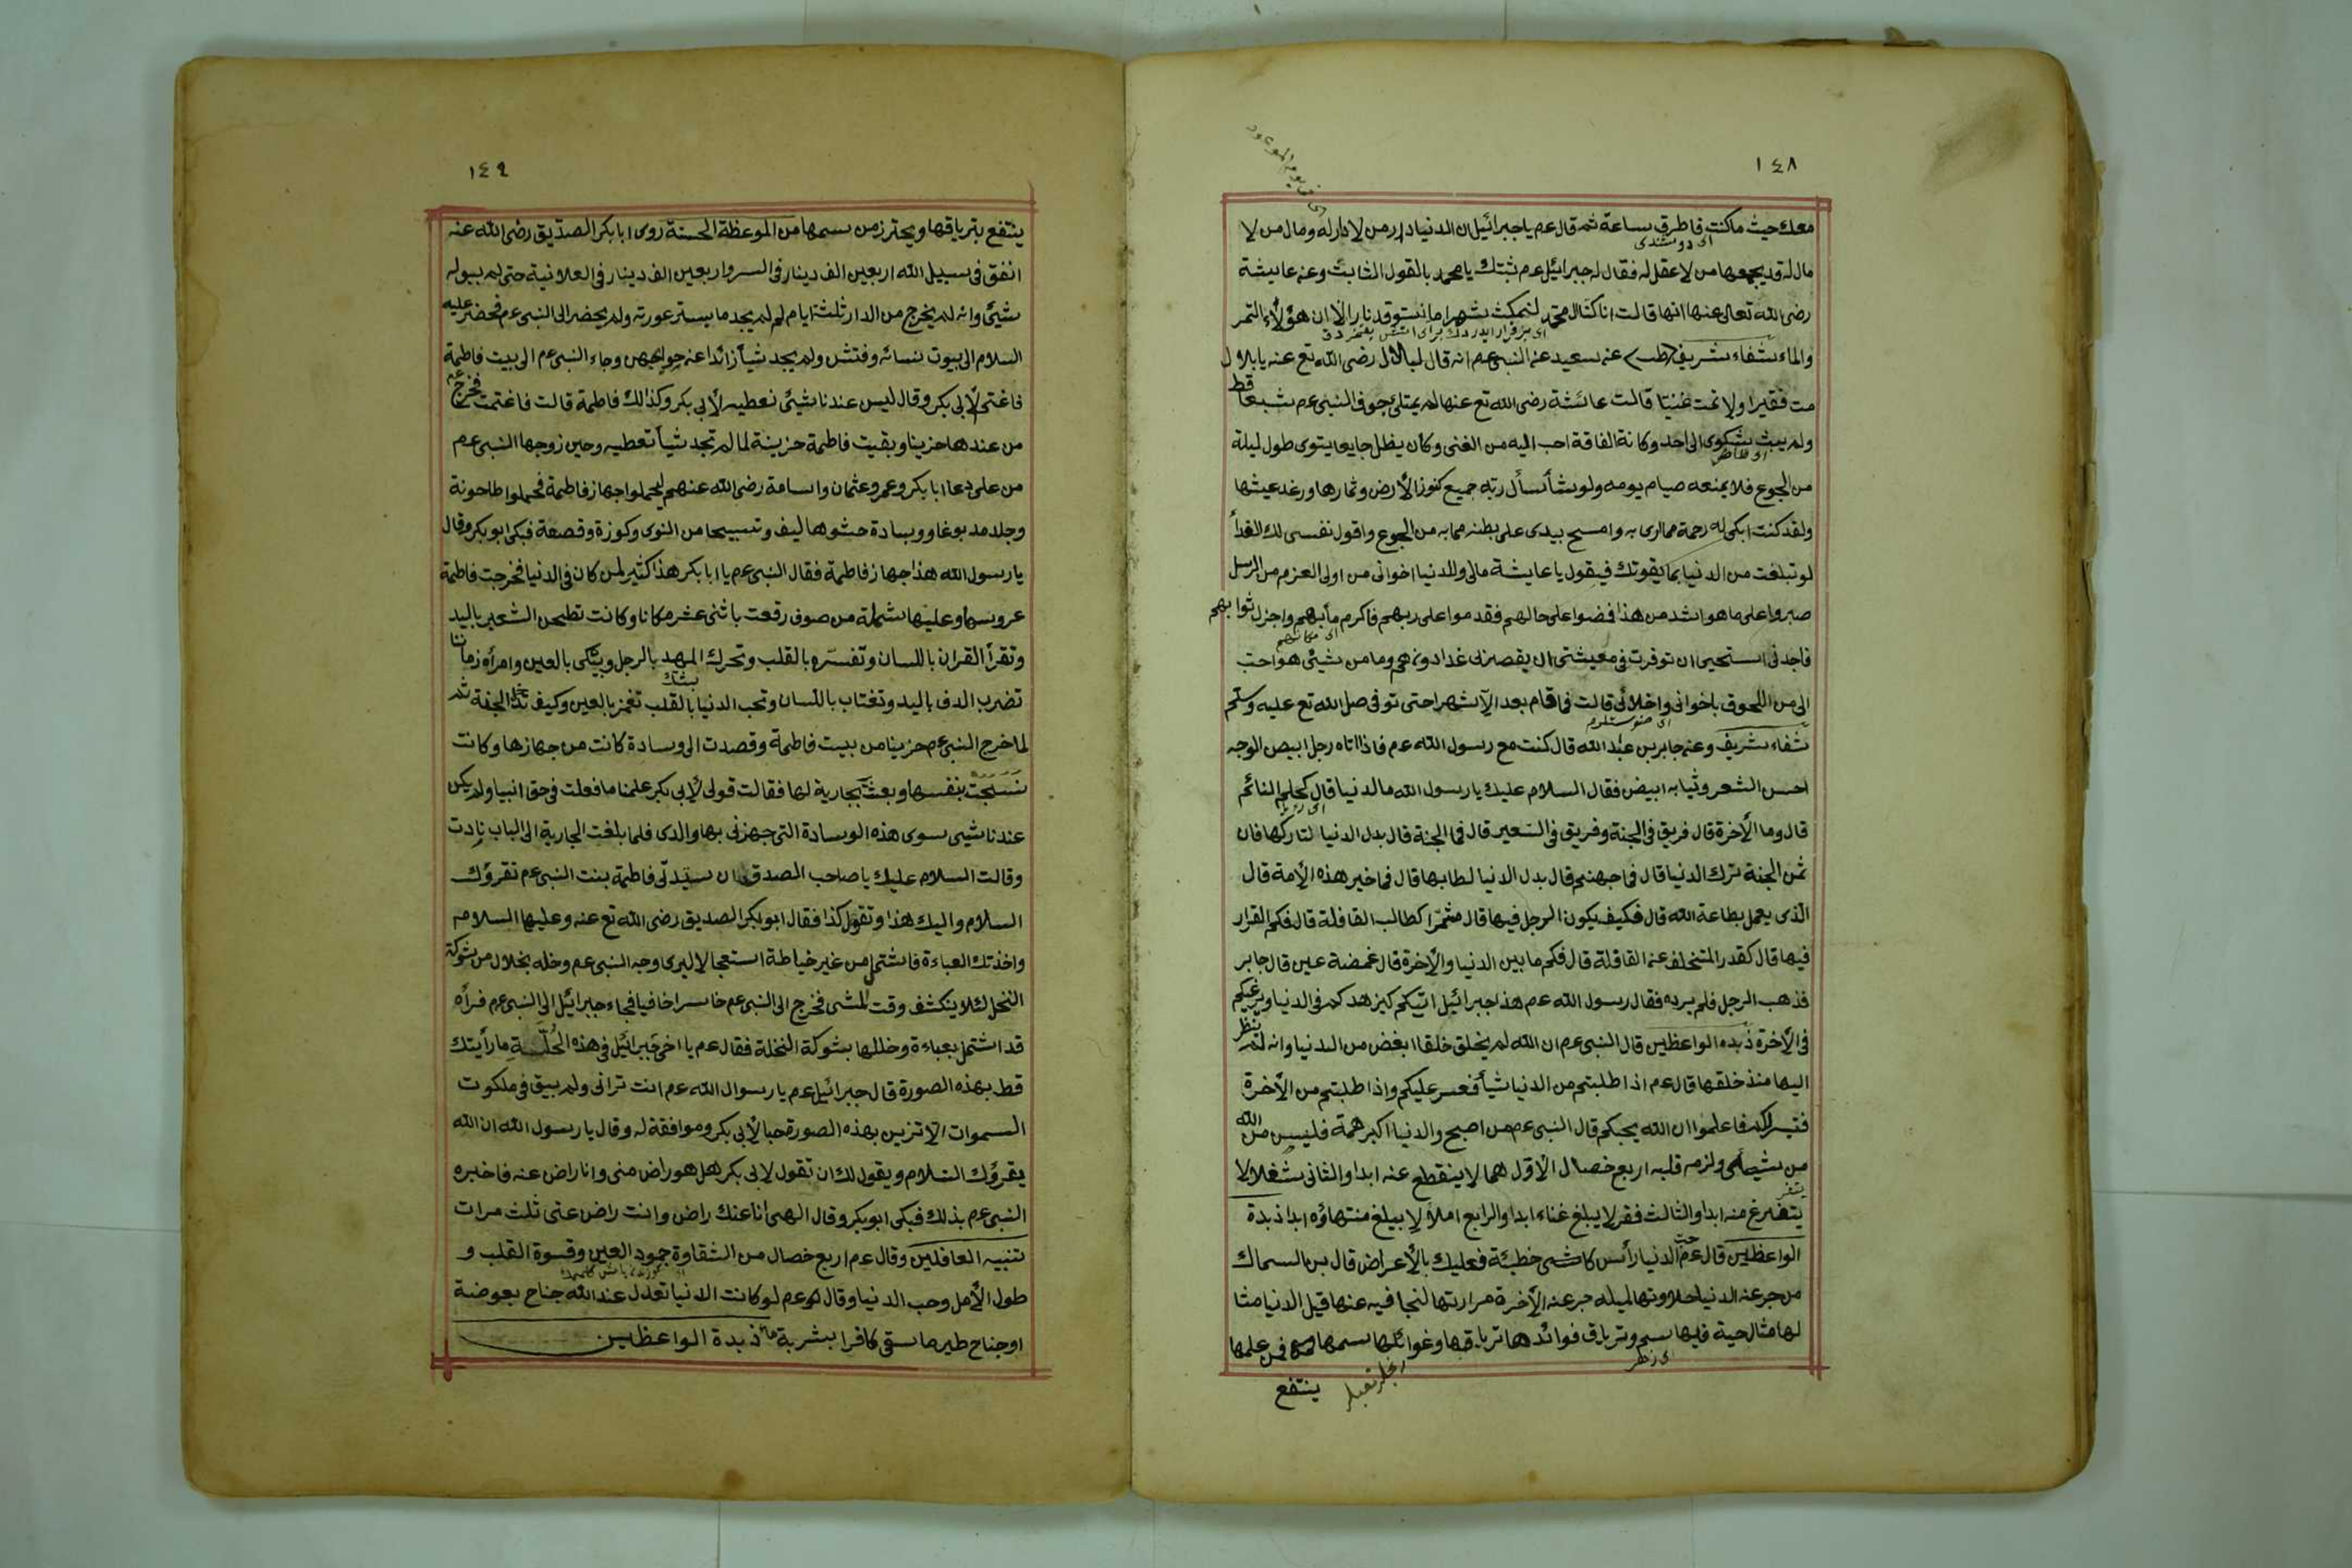 ١٤٨
معك حيث ما كنت فاطرق ساعة ثم قال عم يا جبرائيل ان الدنيا دار من لا دار له ومال من لا
مال له قد يجمعها من لا عقل له فقال له جبرائيل عم ثبتك يا محمد بالقول الثابت وعن عايشة
رضى الله تعالى عنها انها قالت انا كنا ال محمد لنمكث شهرا ما نستوقد نارا الا ان هؤلاء التمر
والماء شفاء شريف (طب) عن سعيد عن النبى عم انه قال لبلال رضى الله تع عنه يا بلال
مت فقيرا ولا تمت غنيا قالت عائشة رضى الله تع عنها لم يمتلئ جوف النبى عم شبعا قط
ولم يبث شكوى الى احد وكانة الفاقة احب اليه من الغنى وكان يظل جايعا يتوى طول ليلة
من الجوع فلا يمنعه صيام يومه ولو شأ سأل ربه جميع كنوز الأرض وثمارها ورغد عيشها
ولقد كنت ابكى له رحمة مما ارى به وامسح بيدى على بطنه مما به من الجوع واقول نفسى لك الفدأ
لو تبلغت من الدنيا بما يقوتك فيقول يا عايشة مالى وللدنيا اخوانى من اولى العزم من الرسل
صبروا على ما هو اشد من هذا فمضوا على حالهم فقدموا على ربهم فاكرم مأبهم واجزل ثوابهم
فاجدنى استحيى ان توفرت فى معيشتى ان يقصرنى غدا دونهم وما من شيئ هو احب
الى من اللحوق باخوانى واخلائى قالت فما اقام بعد الا شهرا حتى توفى صل الله تع عليه وسلم
شفاء شريف وعن جابر بن عبد الله قال كنت مع رسول الله عم فاذا اتاه رجل ابيض الوجه
احسن الشعر وثيابه ابيض فقال السلام عليك يا رسول الله ما الدنيا قال كحلم النائم
قال وما الأخرة قال فريق فى الجنة وفريق فى السعير قال فما الجنة قال بدل الدنيا لتاركها فان
ثمن الجنة ترك الدنيا قال فما جهنم قال بدل الدنيا لطابها قال فما خير هذه الأمة قال
الذى يعمل بطاعة الله قال فكيف يكون الرجل فيها قال مشمرا كطالب القافلة قال فكم القرار
فيها قال كقدر المتخلف عن القافلة قال فكم ما بين الدنيا والأخرة قال غمضة عين قال جابر
فذهب الرجل فلم يره فقال رسول الله عم هذا جبرائيل اتيكم ليزهدكم فى الدنيا ويرغبكم
فى الأخرة زبده الواعظين قال النبى عم ان الله لم يخلق خلقا ابغض من الدنيا وانه لم ينظر
اليها منذ خلقها قال عم اذا طلبتم من الدنيا شيأ فعسر عليكم واذا طلبتم من الأخرة
فتيسر لكم فاعلموا ان الله يحبكم قال النبى عم من اصبح والدنيا اكبر همة فليس من الله
من شيئ ولزم قلبه اربع خصال الاول هما لا ينقطع عنه ابدا والثانى شغلا لا
يتفرغ منه ابدا والثالث فقر لا يبلغ غناء ابدا والرابع املا لا يبلغ منتهاؤه ابدا ذبدة
الواعظين قال عم حب الدنيا رأس كل خطيئة فعليك بالأعراض قال بن السماك
من جرعنه الدنيا حلاوتها لميله جرعنه الآخرة مرارتها لتجافيه عنها قيل الدنيا مثا
لها مثال حية فيها سم وترياق فوائدها ترياقها وغوائلها سمها فمن علمها
ينتفع
١٤٩
ينتفع بترياقها ويحترز من سمها من الموعظة الحسنة روى ابا بكر الصديق رضى الله عنه
انفق فى سبيل الله اربعين الف دينار فى السر واربعين الف دينار فى العلانية حتى لم يبق له
شيئ وانه لم يخرج من الدار ثلثة ايام لم يجد ما يستر عورته ولم يحضر الى النبى عم فحضر عليه
السلام الى بيوت نسائه وفتش ولم يجد شيأ زائدا عن حوايجهن وجاء النبى عم الى بيت فاطمة
فاغتم لأبى بكر وقال ليس عندنا شيئ نعطيه لأبى بكر وكذالك فاطمة قالت فاغتمت فخرج عم
من عندها حزينا وبقيت فاطمة حزينة لما لم تجد شيأ تعطيه وحين زوجها النبى عم
من على دعا ابا بكر وعمر وعثمان واسامة رضى الله عنهم ليحملوا جهاز فاطمة فحملوا طاحونة
وجلد مدبوغا ووسادة حشوها ليف وتسبيحا من النوى وكوزة وقصعة فبكى ابو بكر وقال
يا رسول الله هذا جهاز فاطمة فقال النبى عم يا ابا بكر هذا كثير لمن كان فى الدنيا فخرجت فاطمة
عروسها وعليها شملة من صوف رقعت باثنى عشر مكانا وكانت تطحن الشعير باليد
وتقرأ القران باللسان وتفسره بالقلب وتحرك المهد بالرجل وتبكى بالعين وامرأة زماننا
تضرب الدف باليد وتغتاب باللسان وتحب الدنيا بالقلب تغمز بالعين وكيف تدخل الجنة ثم
لما خرج النبى عم حزينا من بيت فاطمة وقصدت الى وسادة كانت من جهازها وكانت
نسجت بنفسها وبعثت بجارية لها فقالت قولى لأبى بكر علمنا ما فعلت فى حق انبيا ولم يكن
عندنا شيئ سوى هذه الوسادة التى جهزنى بها والدى فلما بلغت الجارية الى الباب نادت
وقالت السلام عليك يا صاحب الصدق ان سيدتى فاطمة بنت النبى عم تقرؤك
السلام واليك هذا وتقول كذا فقال ابو بكر الصديق رضى الله تع عنه وعليها السلام
واخذ تلك العباءة فاشتمل من غير خياطة استعجالا ليرى وجه النبى عم وخله بخلال من شوكة
النخل لئلا ينكشف وقت المشى فخرج الى النبى عم خاسرا حافيا فجاء جبرائيل الى النبى عم فرأه
قد اشتمل بعباءة وخللها بشوكة النخلة فقال عم يا اخى جبرائيل فى هذه الحلسة ما رأيتك
قط بهذه الصورة قال جبرائيل عم يا رسوال الله عم انت ترانى ولم يبق فى ملكوت
السموات الا تزين بهذه الصورة حبا لأبى بكر وموافقة له وقال يا رسول الله ان الله
يقرؤك السلام ويقول لك ان تقول لابى بكر هل هو راض منى وانا راض عنه فاخبره
النبى عم بذلك فبكى ابو بكر وقال الهى أنا عنك راض وانت راض عنى ثلث مرات
تنبيه الغافلين وقال عم اربع خصال من الشقاوة جمود العين وقسوة القلب و
طول الأمل وحب الدنيا وقال عم لو كانت الدنيا تعدل عند الله جناح بعوضة
او جناح طير ما سقى كافرا بشربة ماء ذبدة الواعظين